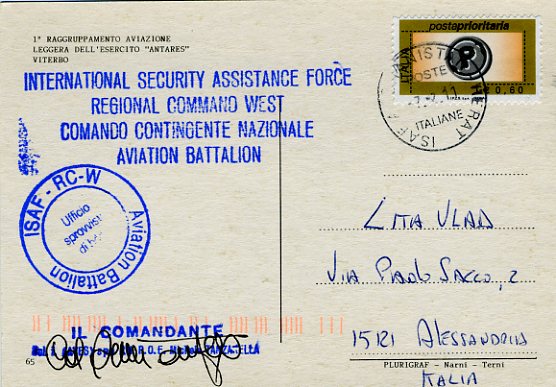 1° RAGGRUPPAMENTO AVIAZIONE
LEGGERA DELL'ESERCITO "ANTARES"
VITERBO
INTERNATIONAL SECURITY ASSISTANCE FORCE
REGIONAL COMMAND WEST
COMANDO CONTINGENTE NAZIONALE
AVIATION BATTALION
ISAF - RC-W
Aviation Battalion
Ufficio
sprovvisto
di
postaprioritaria
P
€ 0,60
POSTE
ITALIANE
HERAT ISAF
LITA VLAD
VIA PAOLO SACCO, 2
15121 ALESSANDRIA
ITALIA
IL COMANDANTE
65
PLURIGRAF - Narni - Terni